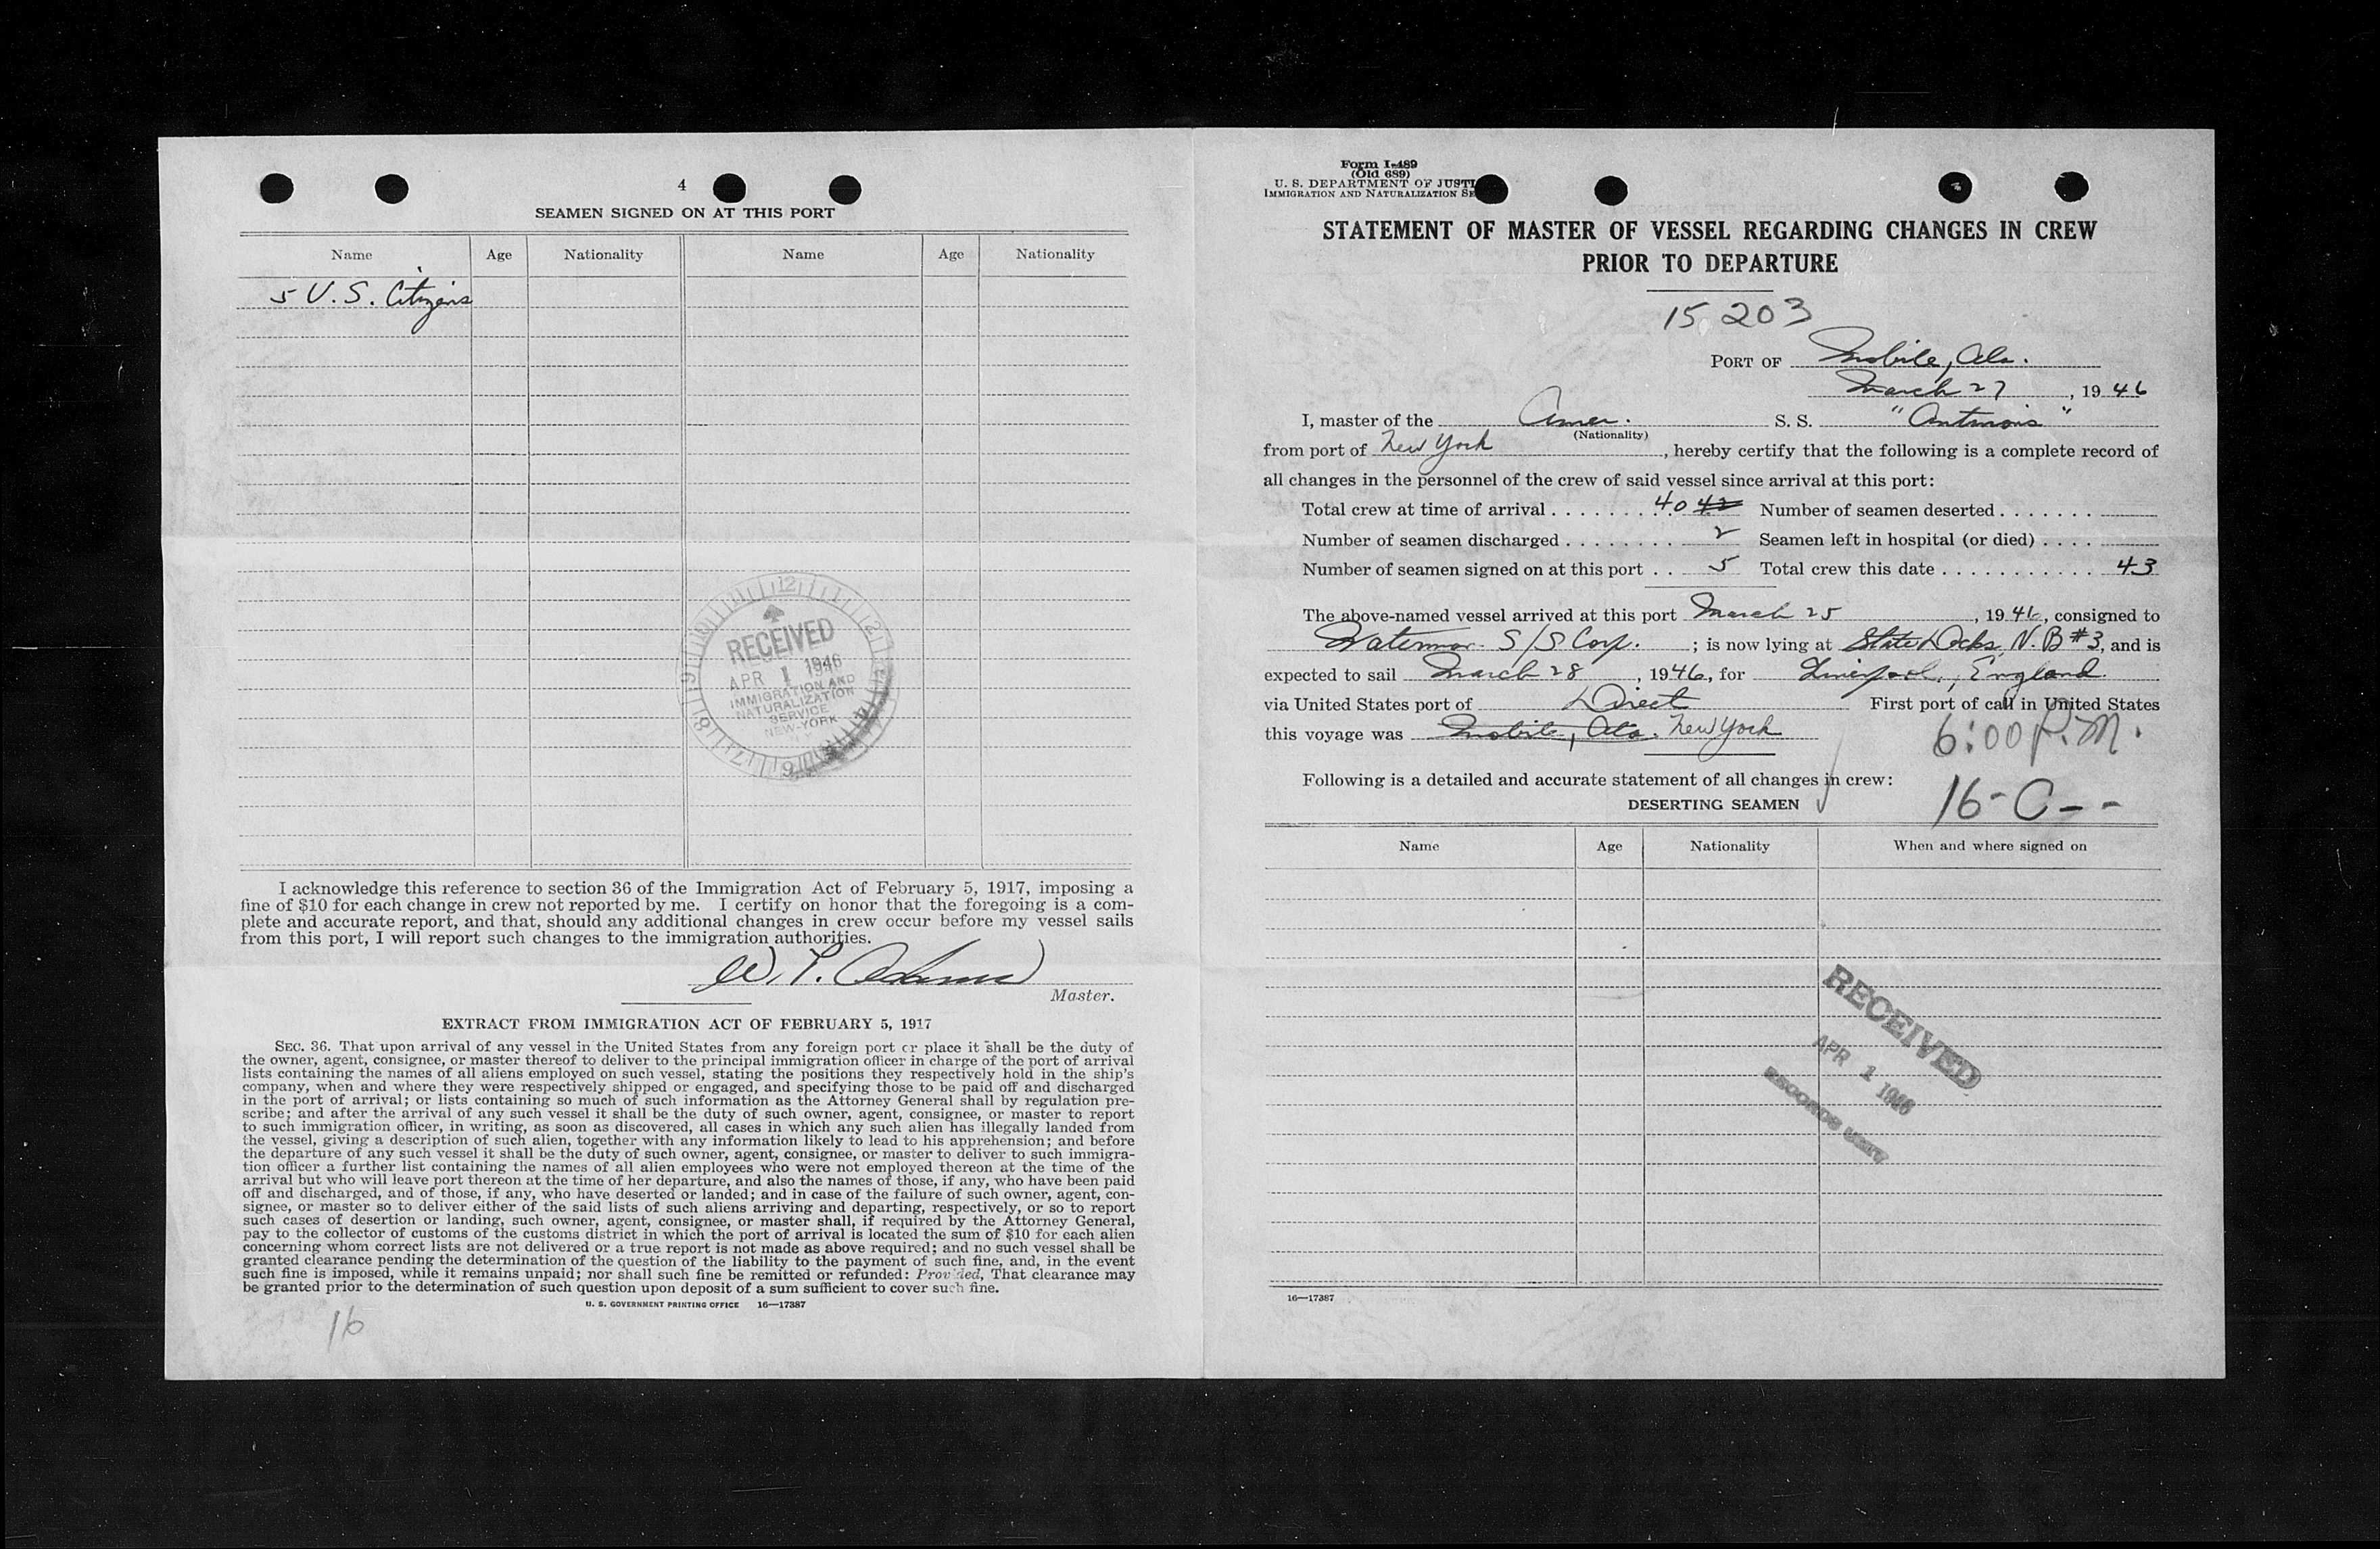 4
SEAMEN SIGNED ON AT THIS PORT
Name Age Nationality Name Age Nationality
5 U.S. Citizens
RECEIVED
APR 1 1946
IMMIGRATION AND
NATURALIZATION
SERVICE
NEW-YORK
I acknowledge this reference to section 36 of the Immigration Act of February 5, 1917, imposing a
fine of $10 for each change in crew not reported by me. I certify on honor that the foregoing is a com-
plete and accurate report, and that, should any additional changes in crew occur before my vessel sails
from this port, I will report such changes to the immigration authorities.
Adams
Master.
EXTRACT FROM IMMIGRATION ACT OF FEBRUARY 5, 1917
SEC. 36. That upon arrival of any vessel in the United States from any foreign port or place it shall be the duty of
the owner, agent, consignee, or master thereof to deliver to the principal immigration officer in charge of the port of arrival
lists containing the names of all aliens employed on such vessel, stating the positions they respectively hold in the ship's
company, when and where they were respectively shipped or engaged, and specifying those to be paid off and discharged
in the port of arrival; or lists containing so much of such information as the Attorney General shall by regulation pre-
scribe; and after the arrival of any such vessel it shall be the duty of such owner, agent, consignee, or master to report
to such immigration officer, in writing, as soon as discovered, all cases in which any such alien has illegally landed from
the vessel, giving a description of such alien, together with any information likely to lead to his apprehension; and before
the departure of any such vessel it shall be the duty of such owner, agent, consignee, or master to deliver to such immigra-
tion officer a further list containing the names of all alien employees who were not employed thereon at the time of the
arrival but who will leave port thereon at the time of her departure, and also the names of those, if any, who have been paid
off and discharged, and of those, if any, who have deserted or landed; and in case of the failure of such owner, agent, con-
signee, or master so to deliver either of the said lists of such aliens arriving and departing, respectively, or so to report
such cases of desertion or landing, such owner, agent, consignee, or master shall, if required by the Attorney General,
pay to the collector of customs of the customs district in which the port of arrival is located the sum of $10 for each alien
concerning whom correct lists are not delivered or a true report is not made as above required; and no such vessel shall be
granted clearance pending the determination of the question of the liability to the payment of such fine, and, in the event
such fine is imposed, while it remains unpaid; nor shall such fine be remitted or refunded: Provided, That clearance may
be granted prior to the determination of such question upon deposit of a sum sufficient to cover such fine.
U. S. GOVERNMENT PRINTING OFFICE 16—17387
16
Form I-489
(Old 689)
U. S. DEPARTMENT OF JUSTI
IMMIGRATION AND NATURALIZATION SE
STATEMENT OF MASTER OF VESSEL REGARDING CHANGES IN CREW
PRIOR TO DEPARTURE
15203
PORT OF Mobile, Ala.
March 27, 1946
I, master of the Amer. S. S. "Antinois"
(Nationality)
from port of New York, hereby certify that the following is a complete record of
all changes in the personnel of the crew of said vessel since arrival at this port:
Total crew at time of arrival . . . . . . . 40 42 Number of seamen deserted . . . . . . .
Number of seamen discharged . . . . . . . . 2 Seamen left in hospital (or died) . . . .
Number of seamen signed on at this port . . 5 Total crew this date . . . . . . . . . . . . 43
The above-named vessel arrived at this port March 25, 1946, consigned to
Waterman S/S Corp. ; is now lying at State Docks, N. B #3, and is
expected to sail March 28, 1946, for Liverpool, England.
via United States port of Direct First port of call in United States
this voyage was Mobile, Ala. New York
6:00 P.M.
Following is a detailed and accurate statement of all changes in crew:
DESERTING SEAMEN
16-C--
Name Age Nationality When and where signed on
RECEIVED
APR 1 1946
RECORDS UNIT
16—17387